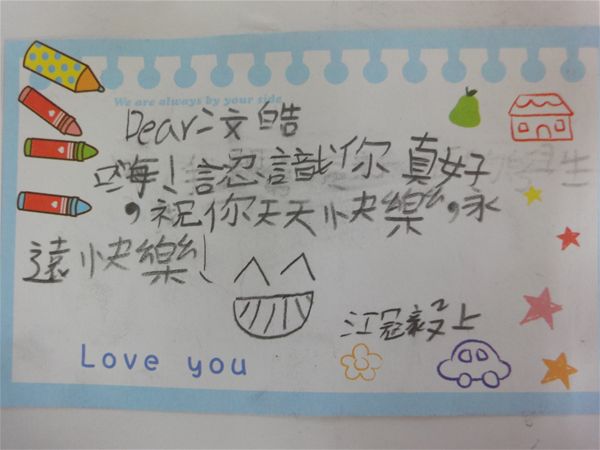 We are always by your side
Dear 汶皓
嗨！認識你真好
，祝你天天快樂，永
遠快樂！
江冠毅上
Love you